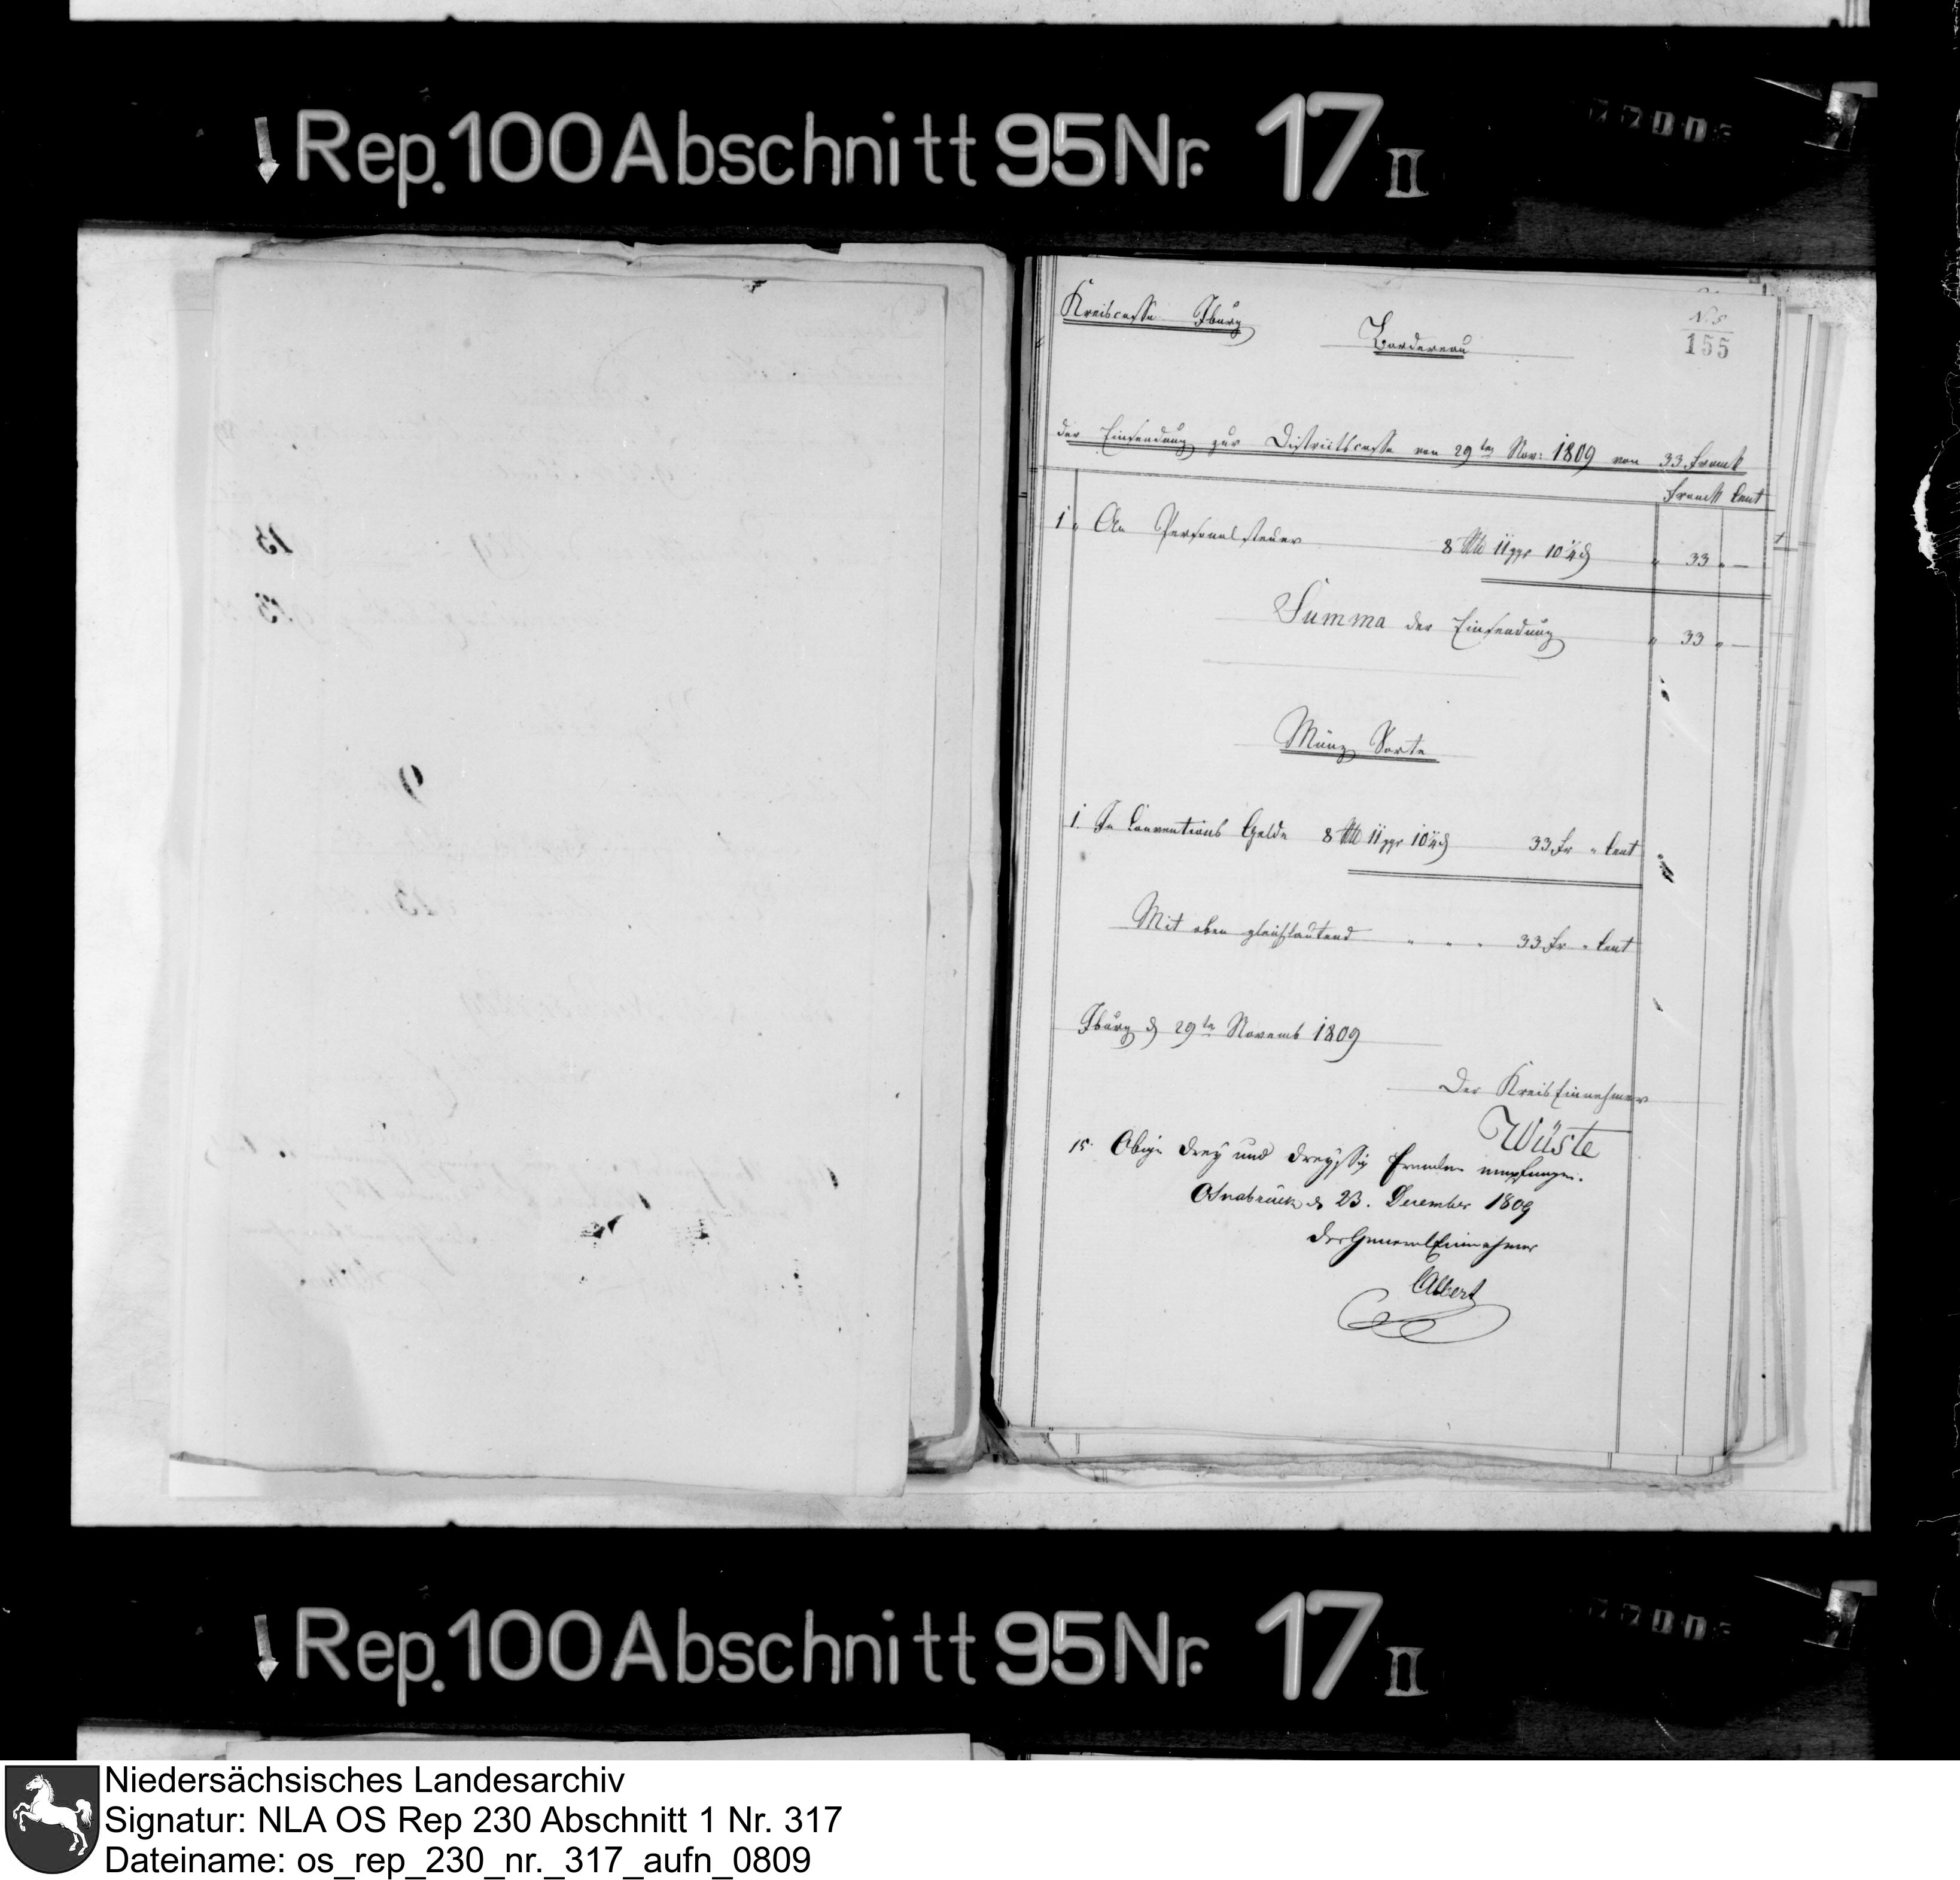 Rep. 100 Abschnitt 95 Nr. 17 II
Kreiscasse Iburg
Bordereau
No 5
155
der Einsendung zur Districtscasse von 29ten Nov: 1809 von 33 Franck
Franck Cent
1. An Personalsteuer 8 Rtlr 11 ggr 10 1/4 d „ 33 „ —
Summa der Einsendung „ 33 „ —
Münz Sorte
1. In Conventions Gelde 8 Rtlr 11 ggr 10 1/4 d 33 Fr „ Cent
Mit oben gleichlautend „ „ „ 33 Fr „ Cent
Iburg d 29ten Novemb 1809
Der Kreis Einnehmer
Wüste
15. Obige drey und dreyssig Franken empfangen.
Osnabrück d 23. December 1809
der General Einnehmer
Albert
Rep. 100 Abschnitt 95 Nr. 17 II
Niedersächsisches Landesarchiv
Signatur: NLA OS Rep 230 Abschnitt 1 Nr. 317
Dateiname: os_rep_230_nr._317_aufn_0809